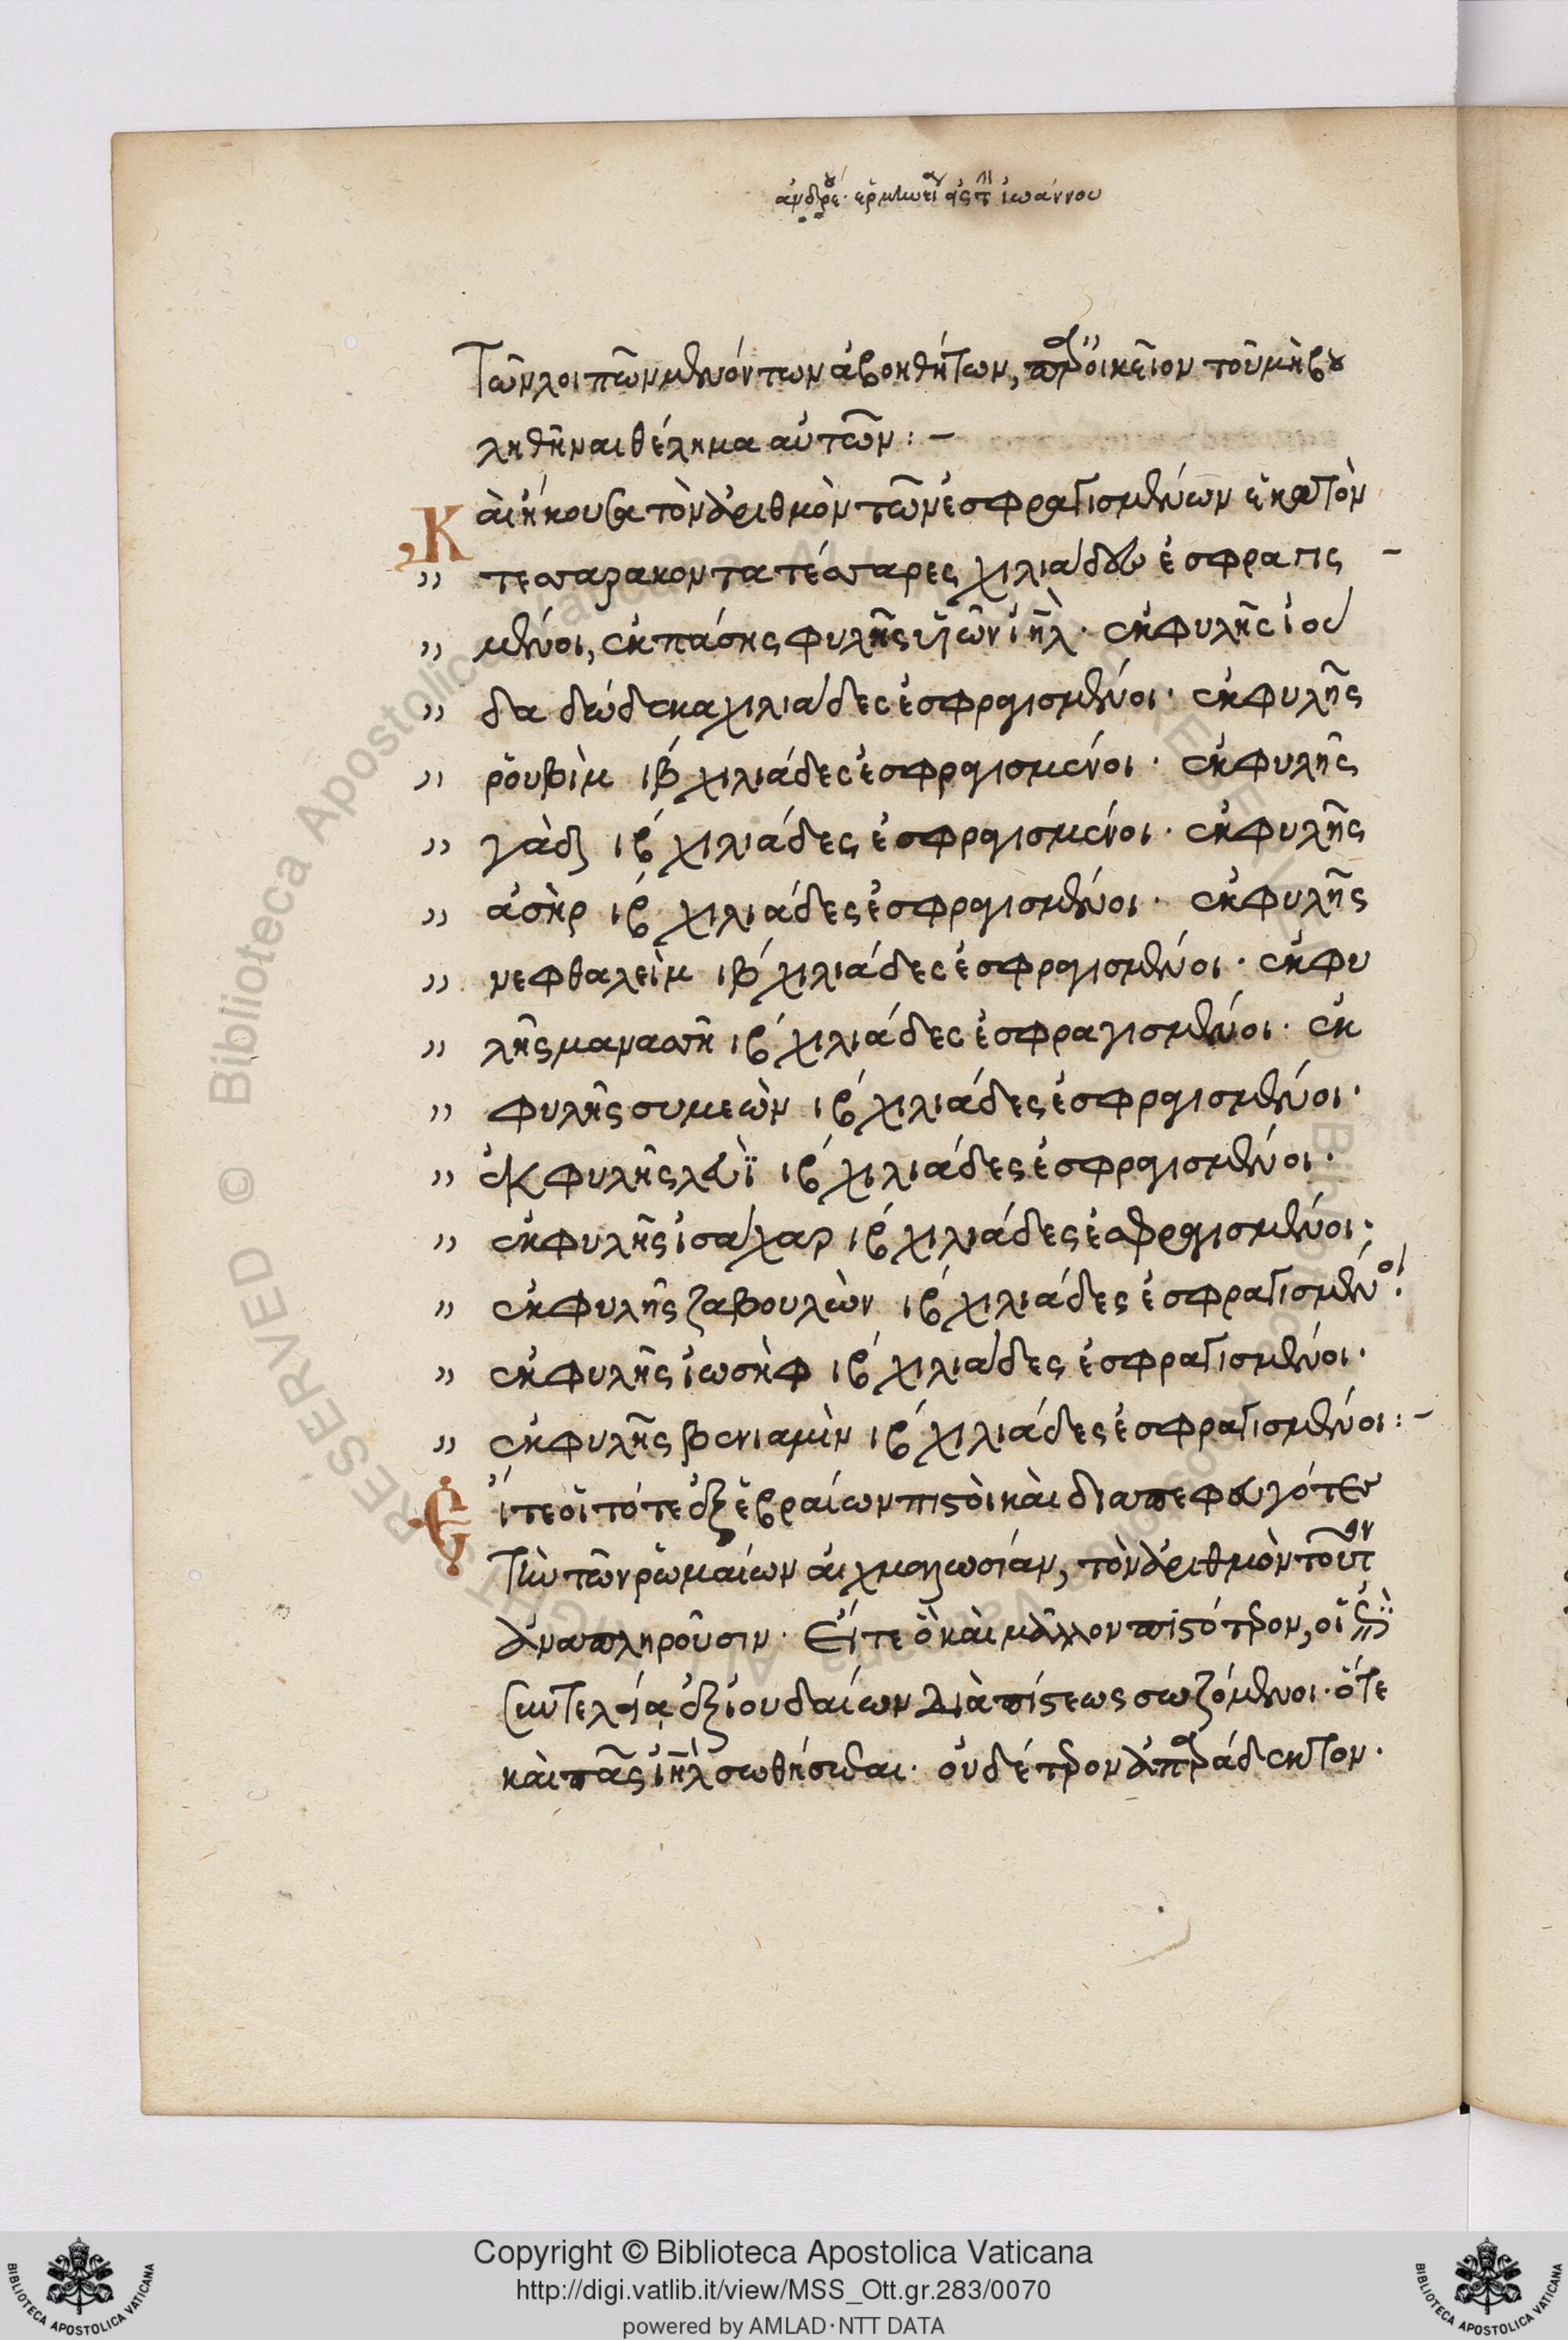 ἀνδρέου ἑρμηνεία εἰς τὴν ἰωάννου
Τῶν λοιπῶν μενόντων ἀβοηθήτων, παρ' οἰκεῖον τοῦ μὴ βου
ληθῆναι θέλημα αὐτῶν: –
Καὶ ἤκουσα τὸν ἀριθμὸν τῶν ἐσφραγισμένων ἑκατὸν
" τεσσαρακοντατέσσαρες χιλιάδες ἐσφραγισ –
" μένοι, ἐκ πάσης φυλῆς υἱῶν ἰηλ. ἐκ φυλῆς ἰού
" δα δώδεκα χιλιάδες ἐσφραγισμένοι. ἐκ φυλῆς
" ῥουβὶμ ιβ χιλιάδες ἐσφραγισμένοι. ἐκ φυλῆς
" γὰδ ιβ χιλιάδες ἐσφραγισμένοι. ἐκ φυλῆς
" ἀσὴρ ιβ χιλιάδες ἐσφραγισμένοι. ἐκ φυλῆς
" νεφθαλεὶμ ιβ χιλιάδες ἐσφραγισμένοι. ἐκ φυ
" λῆς μανασσῆ ιβ χιλιάδες ἐσφραγισμένοι. ἐκ
" φυλῆς συμεὼν ιβ χιλιάδες ἐσφραγισμένοι.
" ἐκ φυλῆς λευῒ ιβ χιλιάδες ἐσφραγισμένοι.
" ἐκ φυλῆς ἰσάχαρ ιβ χιλιάδες ἐσφραγισμένοι.
" ἐκ φυλῆς ζαβουλὼν ιβ χιλιάδες ἐσφραγισμένοι.
" ἐκ φυλῆς ἰωσὴφ ιβ χιλιάδες ἐσφραγισμένοι.
" ἐκ φυλῆς βενιαμὶν ιβ χιλιάδες ἐσφραγισμένοι: –
Εἴτε οἱ τότε ἐξ ἑβραίων πιστοὶ καὶ διαπεφευγότες
τὴν τῶν ῥωμαίων αἰχμαλωσίαν, τὸν ἀριθμὸν τοῦτον
ἀναπληροῦσιν. Εἴτε ὃ καὶ μᾶλλον πιστότερον, οἱ ἐν τῇ
συντελείᾳ ἐξ ἰουδαίων διὰ πίστεως σωζόμενοι. ὅτε
καὶ πᾶς ἰηλ σωθήσεται. οὐδέτερον ἀπαράδεκτον.
© Biblioteca Apostolica Vaticana ALL RIGHTS RESERVED
Copyright © Biblioteca Apostolica Vaticana
http://digi.vatlib.it/view/MSS_Ott.gr.283/0070
powered by AMLAD·NTT DATA
BIBLIOTECA APOSTOLICA VATICANA
BIBLIOTECA APOSTOLICA VATICANA